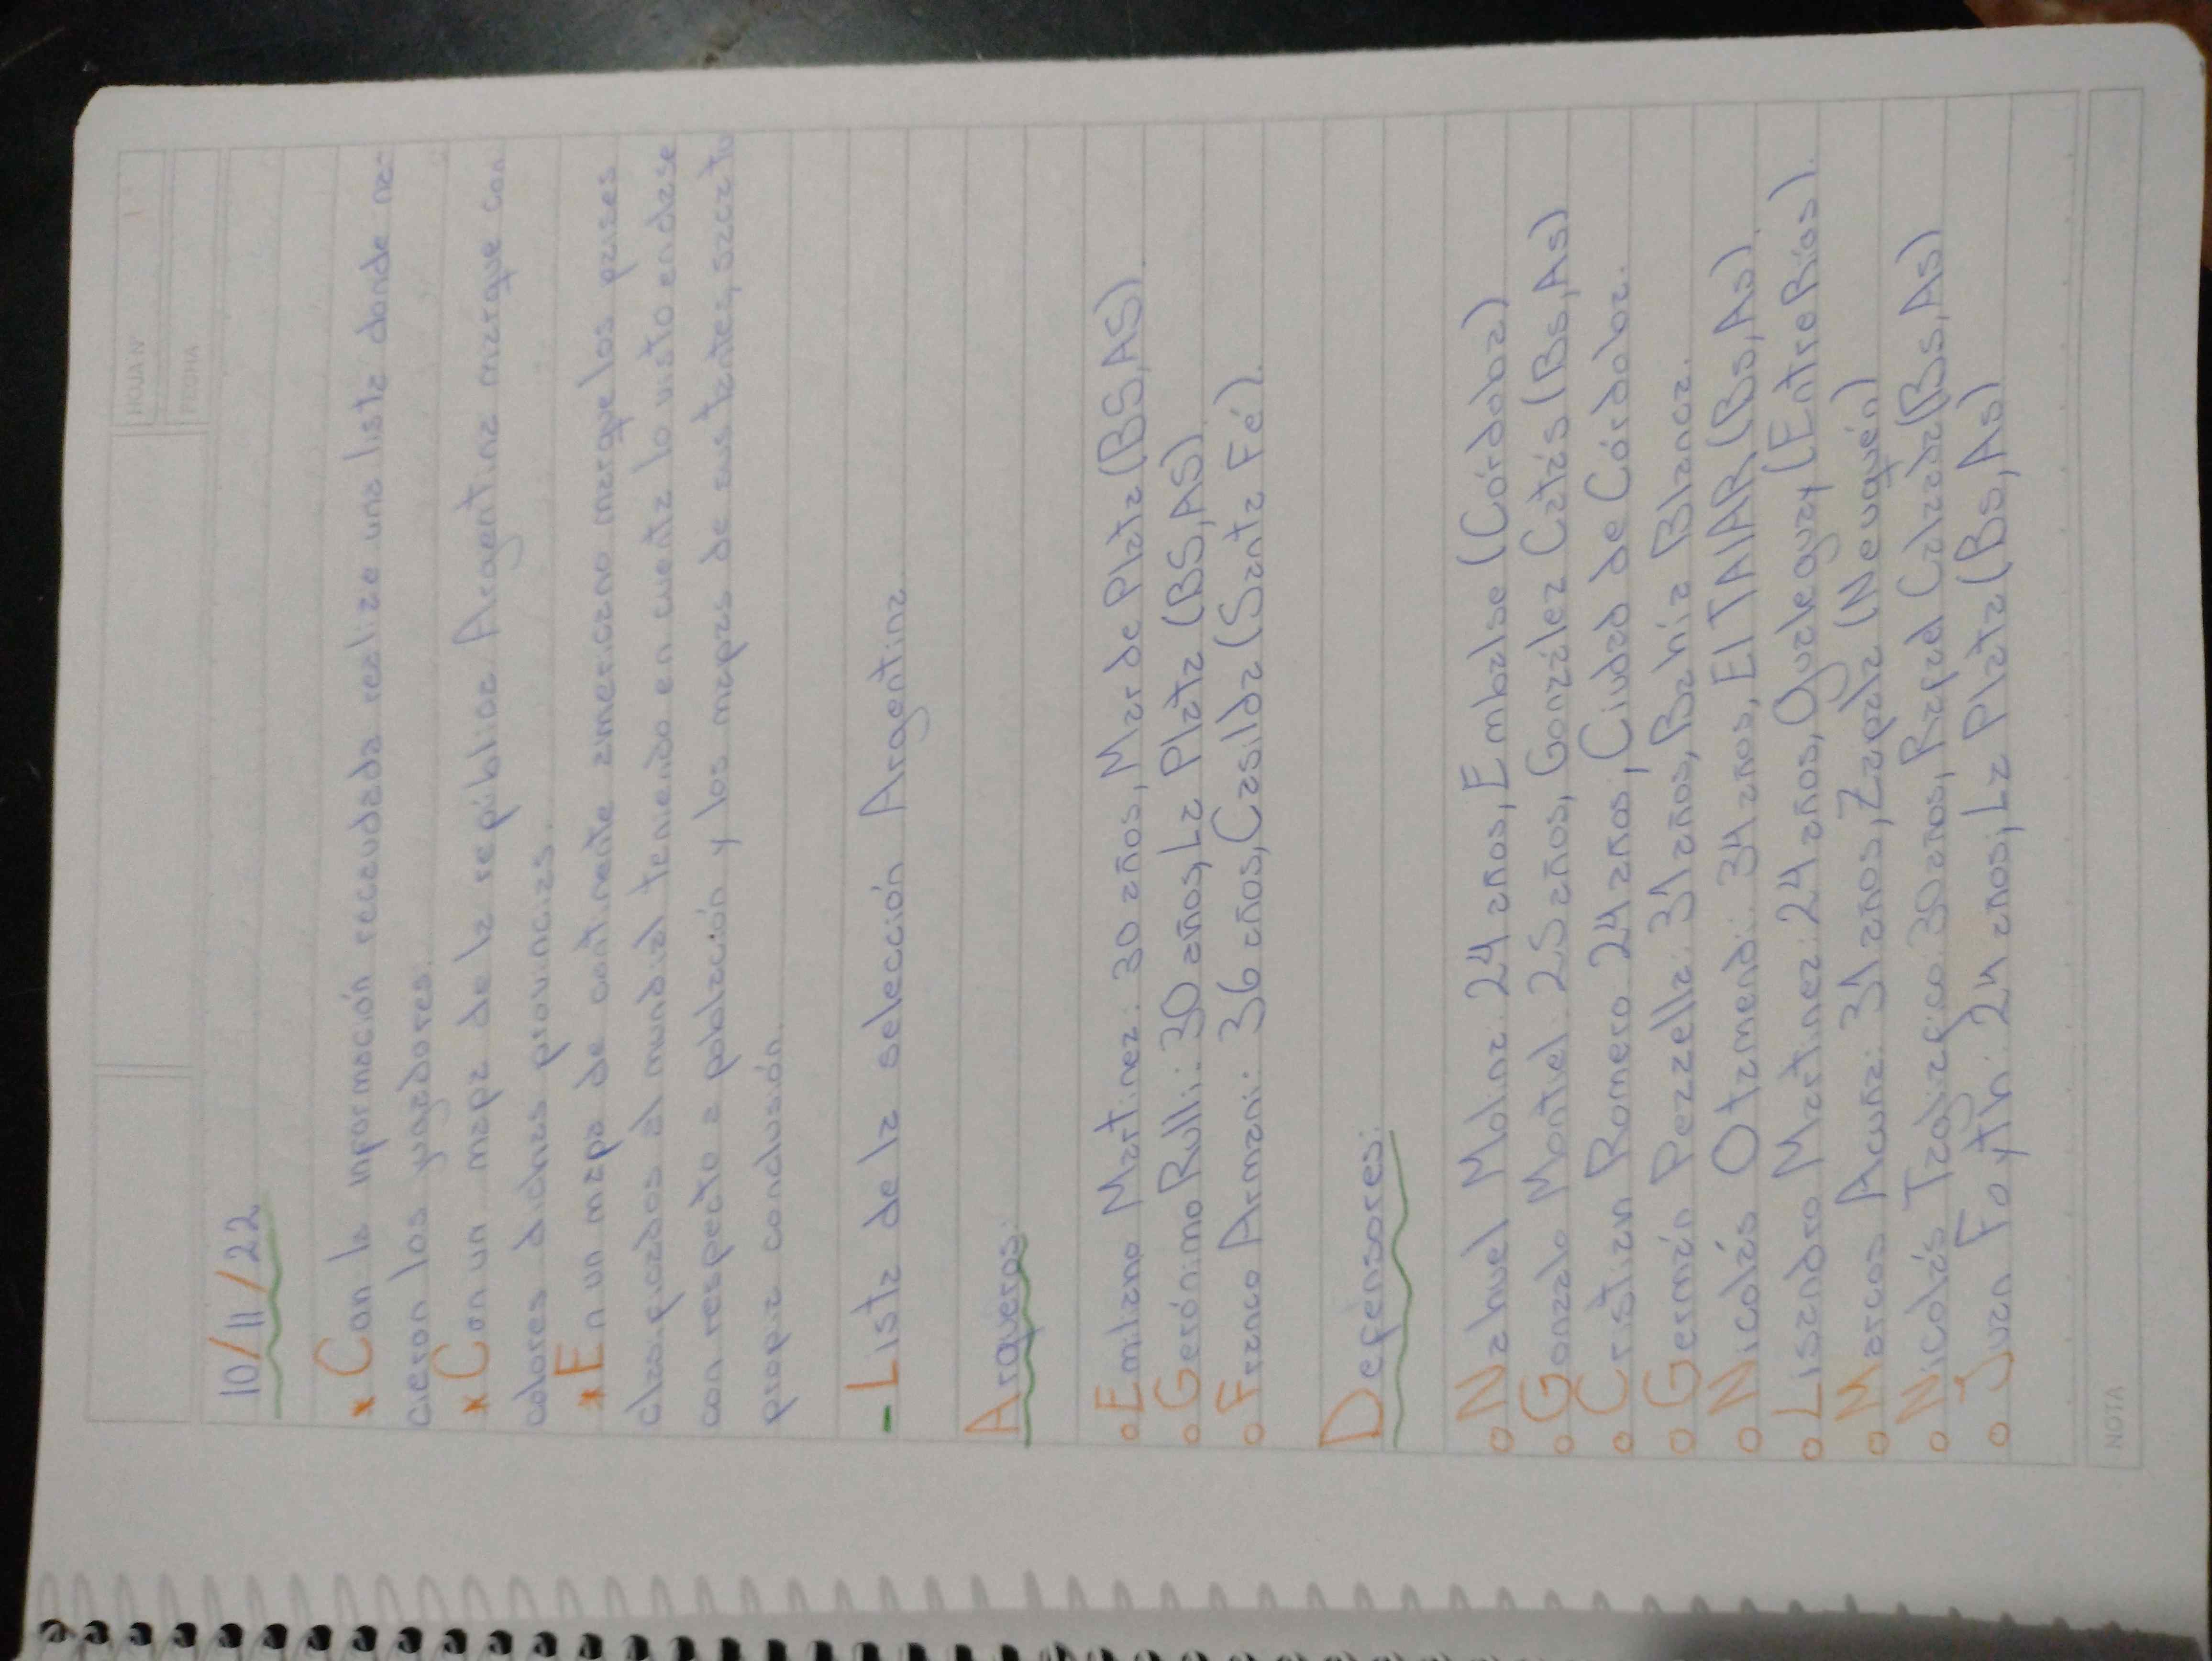 HOJA Nº
FECHA
10/11/22
* Con la información recaudada realize una lista donde na-
cieron los jugadores.
* Con un mapa de la república Argentina marque con
colores dichas provincias.
* En un mapa de continente americano marque los paises
clasificados al mundial teniendo en cuenta lo visto en clase
con respecto a población y los mapas de sustantes, sacartu
propia conclusión.
- Lista de la selección Argentina.
Arqueros:
o Emiliano Martinez: 30 años, Mar de Plata (BS,AS).
o Gerónimo Rulli: 30 años, La Plata (BS,AS)
o Franco Armani: 36 años, Casilda (Santa Fé).
Defensores:
o Nahuel Molina: 24 años, Embalse (Córdoba)
o Gonzalo Montiel: 25 años, González Catás (Bs,As)
o Cristian Romero 24 años, Ciudad de Córdoba.
o Germán Pezzella: 31 años, Bahía Blanca.
o Nicolás Otamendi: 34 años, El TAlAR (Bs,As)
o Lisandro Martinez: 24 años, Gualeguay (Entre Ríos).
o Marcos Acuña: 31 años, Zapala (Neuquén)
o Nicolás Tagliafico: 30 años, Rafael Calzada (Bs,As)
o Juan Foyth: 24 años, La Plata (Bs,As)
NOTA